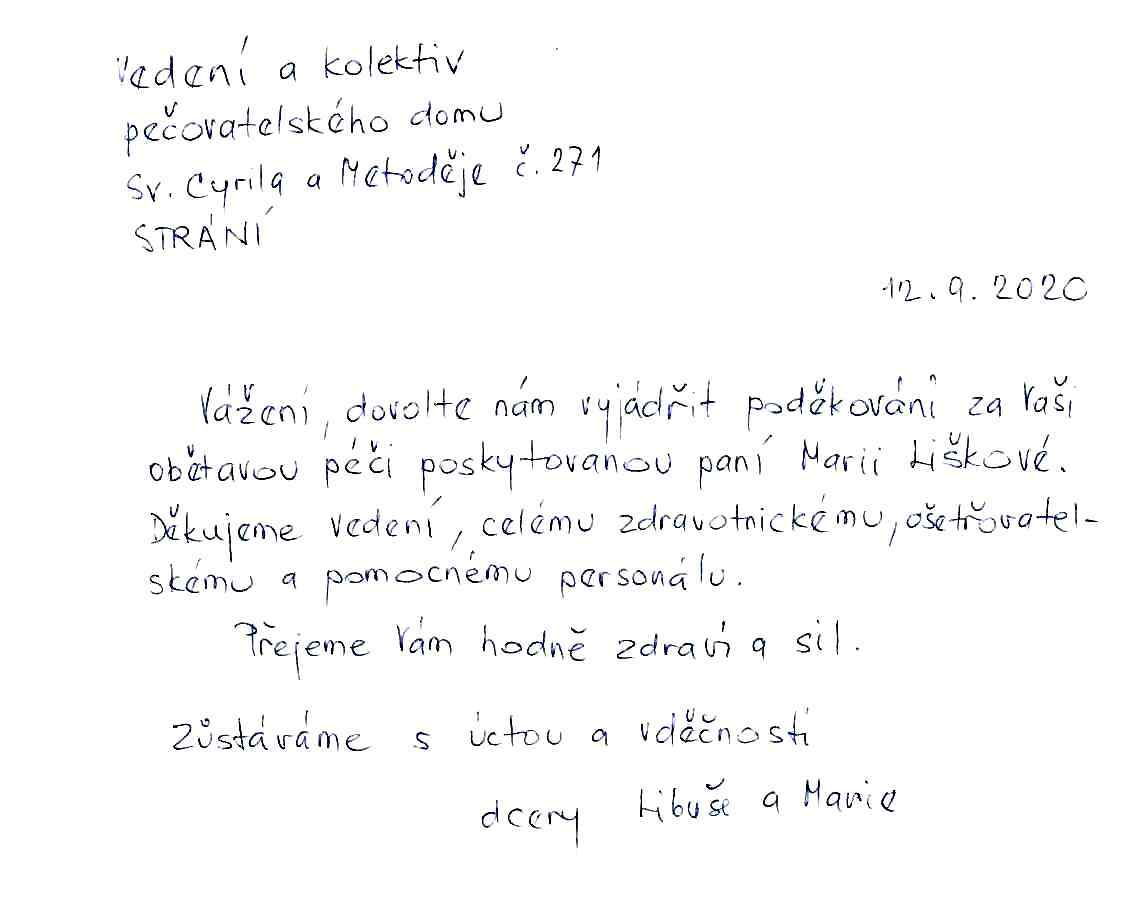 Vedení a kolektiv
pečovatelského domu
Sv. Cyrila a Metoděje č. 271
STRÁNÍ
12. 9. 2020
Vážení, dovolte nám vyjádřit poděkování za Vaši
obětavou péči poskytovanou paní Marii Liškové.
Děkujeme vedení, celému zdravotnickému, ošetřovatel-
skému a pomocnému personálu.
Přejeme Vám hodně zdraví a sil.
Zůstáváme s úctou a vděčností
dcery Libuše a Marie